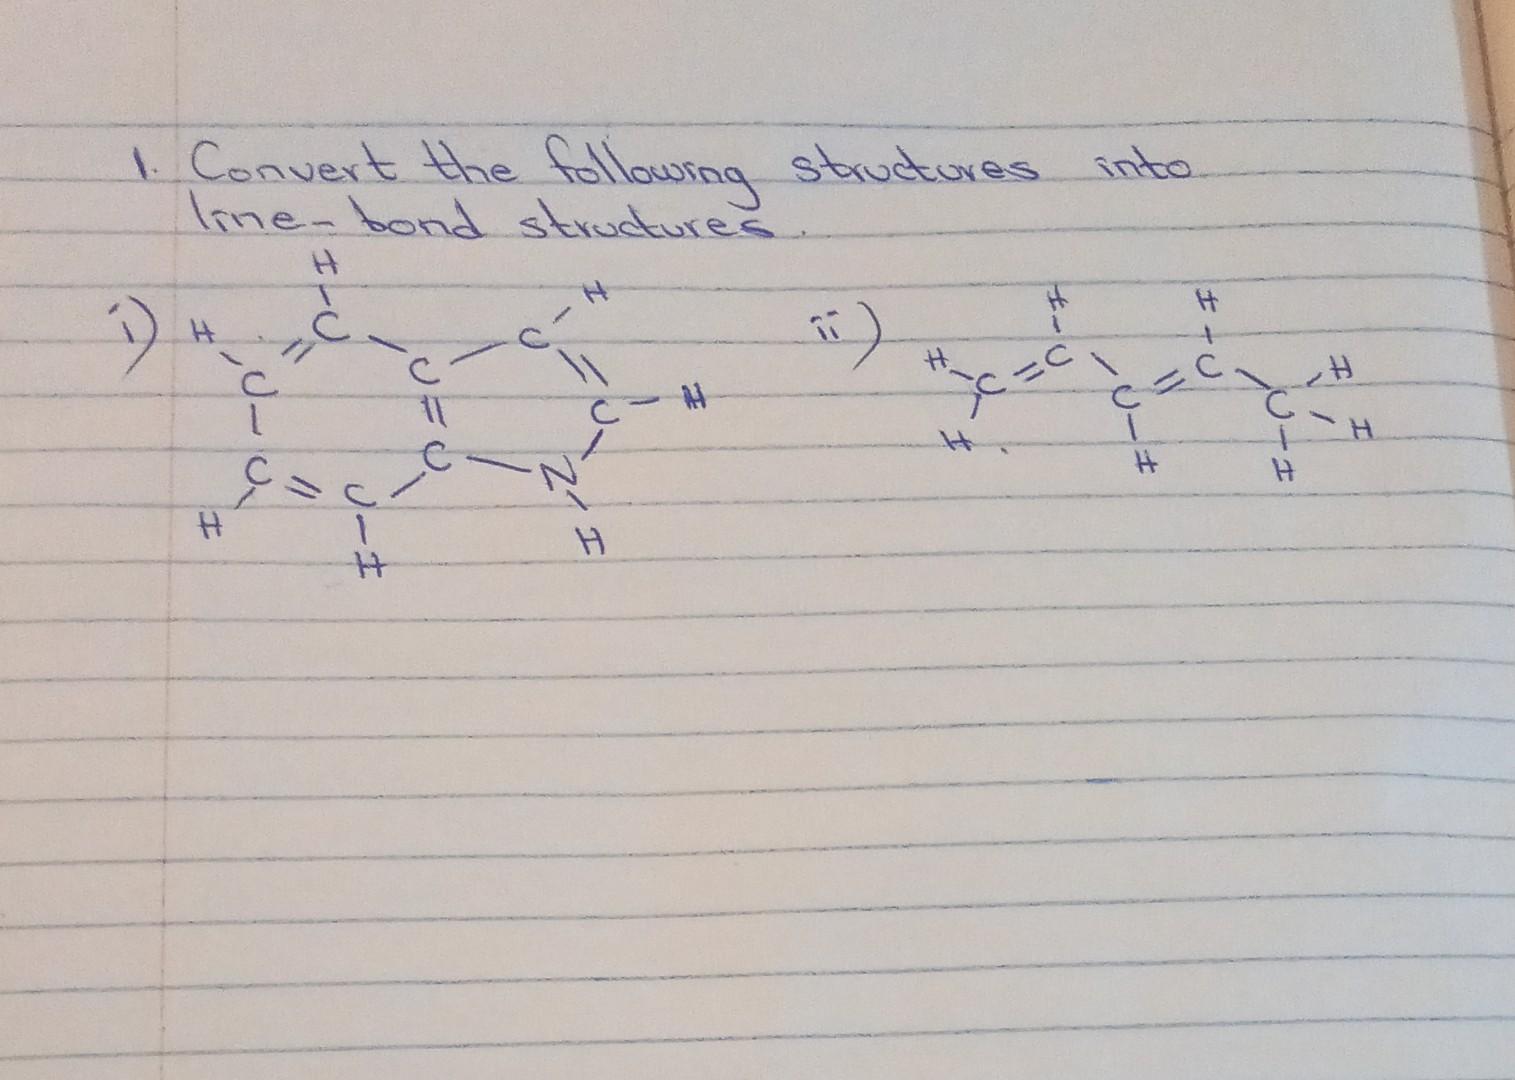 1. Convert the following structures into
line-bond structures.
i) ii)
H H H H
H C C C C H
C C C C C H
C H H H H
C C N
H C H
H